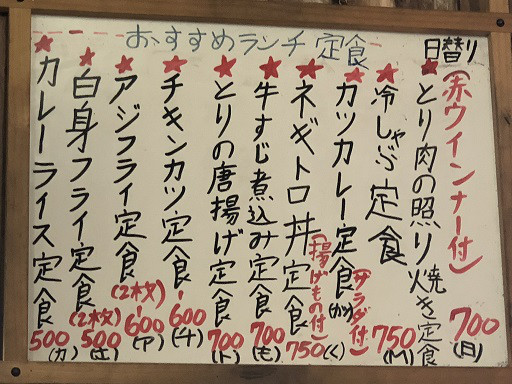 おすすめランチ定食
日替り
(赤ウインナー付)
★とり肉の照り焼き定食 700 (日)
★冷しゃぶ定食 750 (M)
★カツカレー定食 (サラダ付) (カツ)
★ネギトロ丼定食 (揚げもの付) 750 (く)
★牛すじ煮込み定食 700 (も)
★とりの唐揚げ定食 700 (ト)
★チキンカツ定食 600 (チ)
★アジフライ定食 (2枚) 600 (ア)
★白身フライ定食 (2枚) 500
★カレーライス定食 500 (カ)